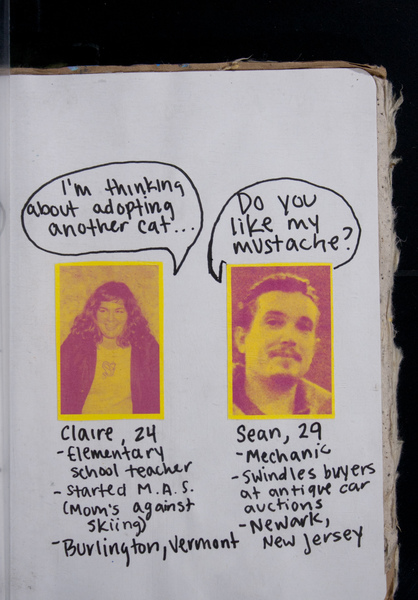 I'm thinking
about adopting
another cat...
Do you
like my
mustache?
Claire, 24
- Elementary
school teacher
- Started M.A.S.
(Mom's against
skiing)
- Burlington, Vermont
Sean, 29
- Mechanic
- Swindles buyers
at antique car
auctions
- Newark,
New Jersey